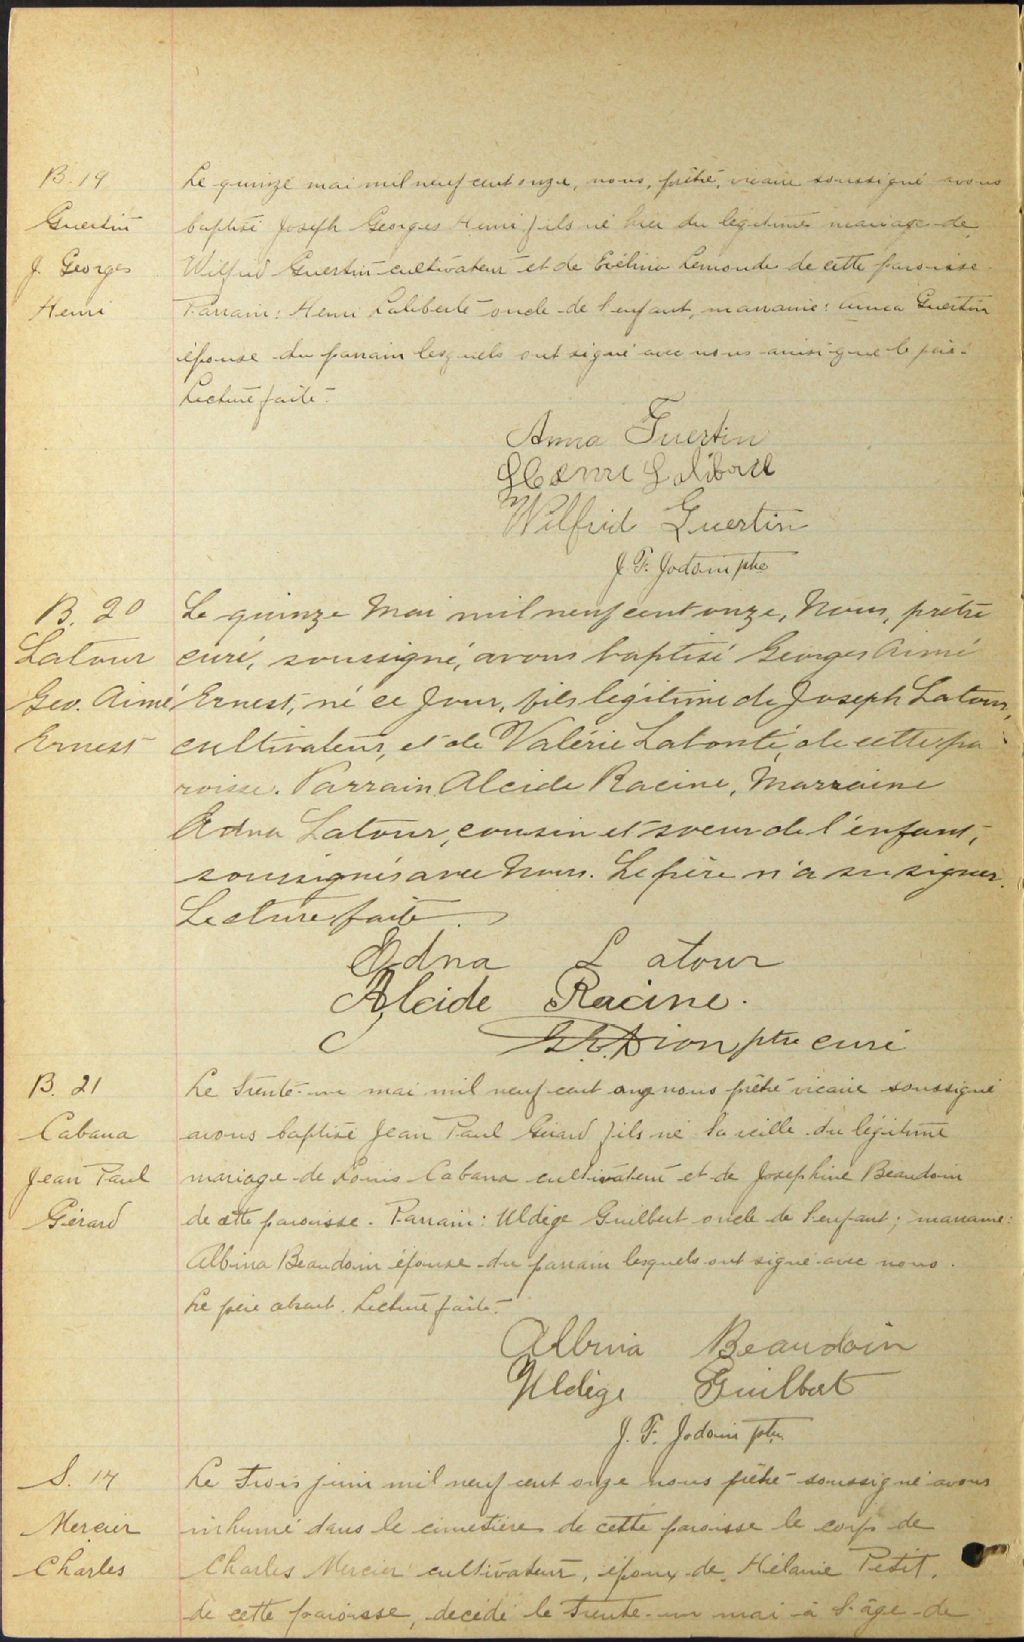 B. 19
Guertin
J. Georges
Henri
Le quinze mai mil neuf cent onze, nous, prêtre, vicaire soussigné avons
baptisé Joseph Georges Henri fils né hier du légitime mariage de
Wilfrid Guertin cultivateur et de Evélina Lemonde de cette paroisse.
Parrain: Henri Laliberté oncle de l'enfant, marraine: Anna Guertin
épouse du parrain lesquels ont signé avec nous ainsi que le père.
Lecture faite.
Anna Guertin
Henri Laliberté
Wilfrid Guertin
J. F. Jodoin ptre
B. 20
Latour
Geo. Aimé
Ernest
Le quinze Mai mil neuf cent onze, Nous, prêtre
curé, soussigné, avons baptisé Georges Aimé
Ernest, né ce jour, fils légitime de Joseph Latour,
cultivateur, et de Valérie Labonté, de cette pa
roisse. Parrain Alcide Racine, Marraine
Edna Latour, cousin et soeur de l'enfant,
soussignés avec Nous. Le père n'a su signer.
Lecture faite
Edna Latour
Alcide Racine.
Dion ptre curé
B. 21
Cabana
Jean Paul
Gérard
Le trente-un mai mil neuf cent onze nous prêtre vicaire soussigné
avons baptisé Jean Paul Gérard fils né la veille du légitime
mariage de Louis Cabana cultivateur et de Josephine Beaudoin
de cette paroisse. Parrain: Uldège Guilbert oncle de l'enfant; marraine:
Albina Beaudoin épouse du parrain lesquels ont signé avec nous.
Le père absent. Lecture faite.
Albina Beaudoin
Uldège Guilbert
J. F. Jodoin ptre
S. 14
Mercier
Charles
Le trois juin mil neuf cent onze nous prêtre soussigné avons
inhumé dans le cimetière de cette paroisse le corps de
Charles Mercier cultivateur, époux de Mélanie Petit,
de cette paroisse, décédé le trente-un mai à l'âge de